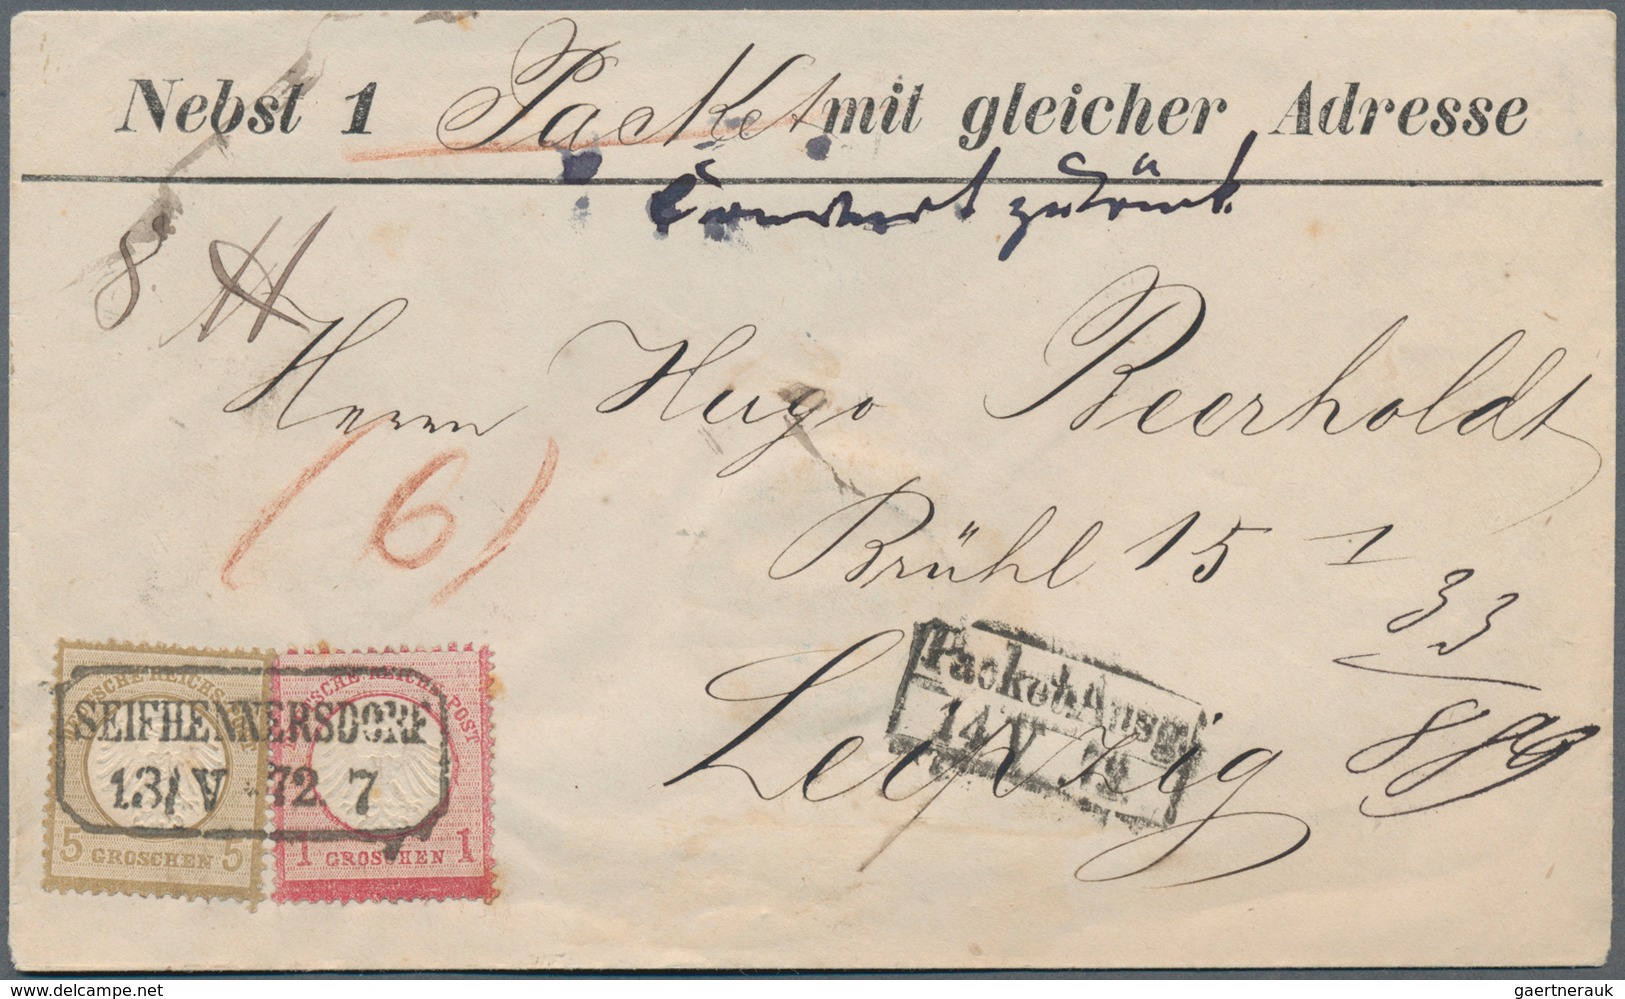 Nebst 1 Packet mit gleicher Adresse
Couvert zurück
8
Herrn Hugo Beerholdt
(6)
Brühl 15 I
33
Leipzig
889
Packet. Ausg.
14 V 72.
DEUTSCHE REICHS-POST
5 GROSCHEN 5
DEUTSCHE REICHS-POST
1 GROSCHEN 1
SEIFHENNERSDORF
13/ V 72 7
www.delcampe.net
gaertnerauk